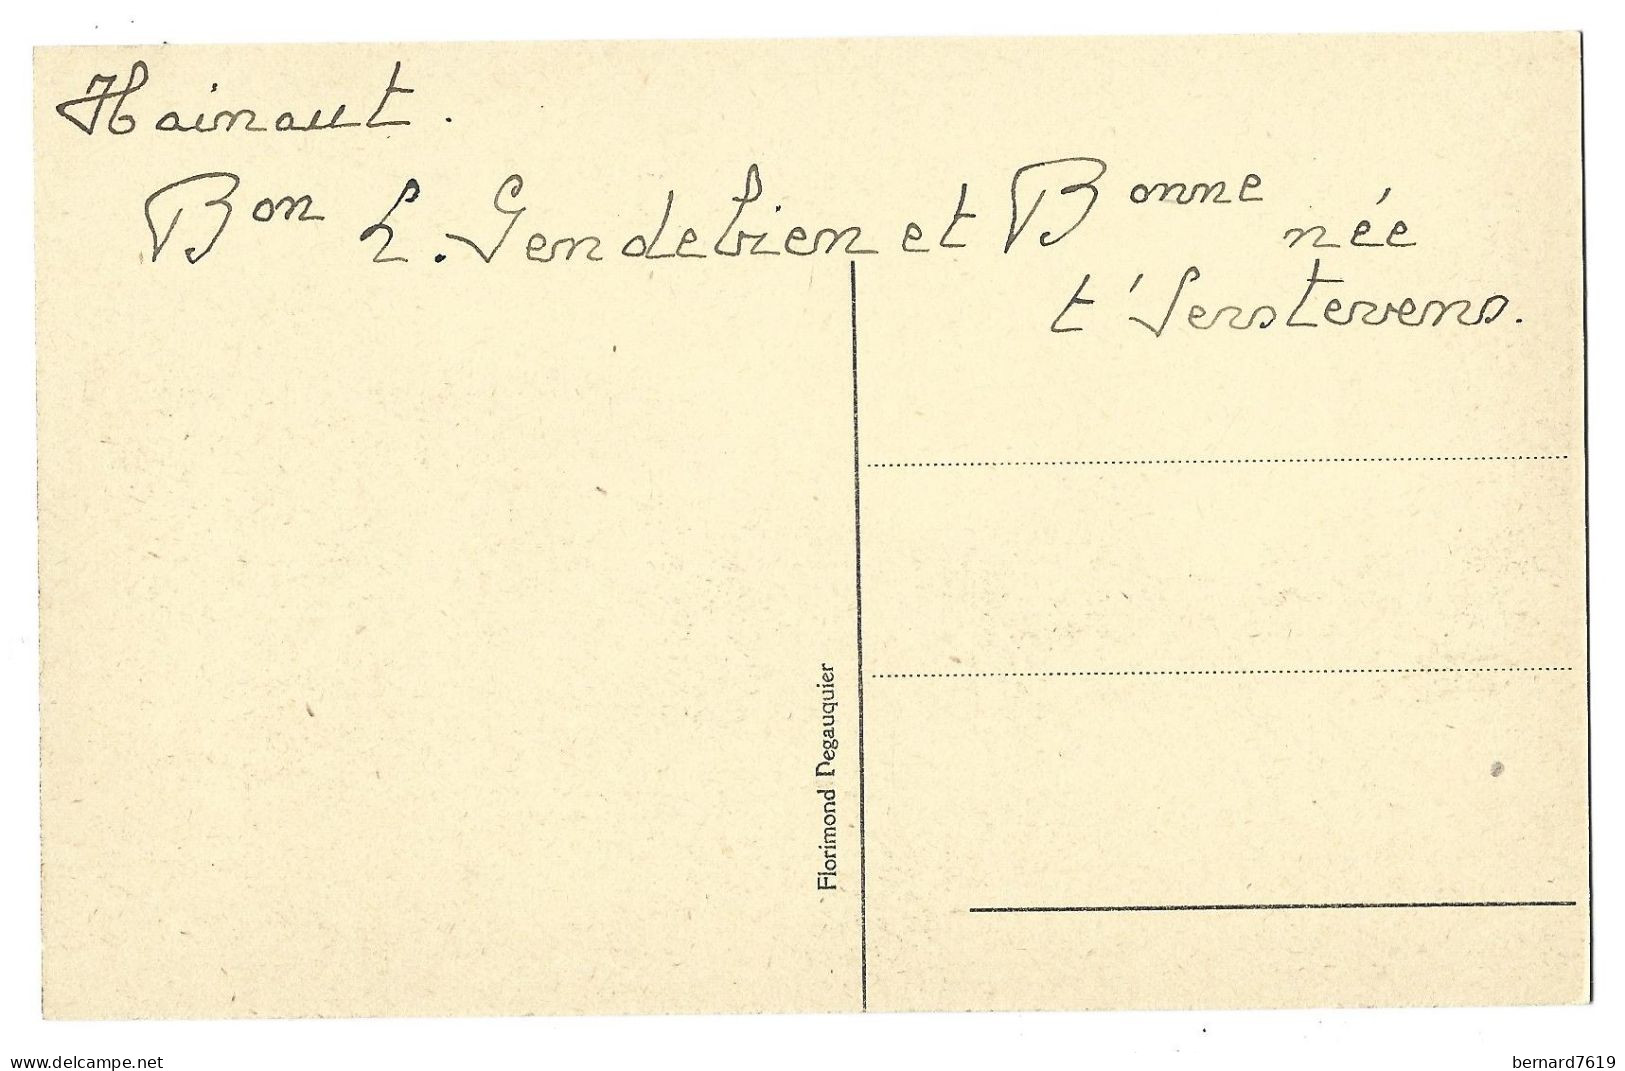 Hainaut.
Bon L. Gendebien et Bonne née
t'Serstevens.
Florimond Degauquier
delcampe.net
bernard7619